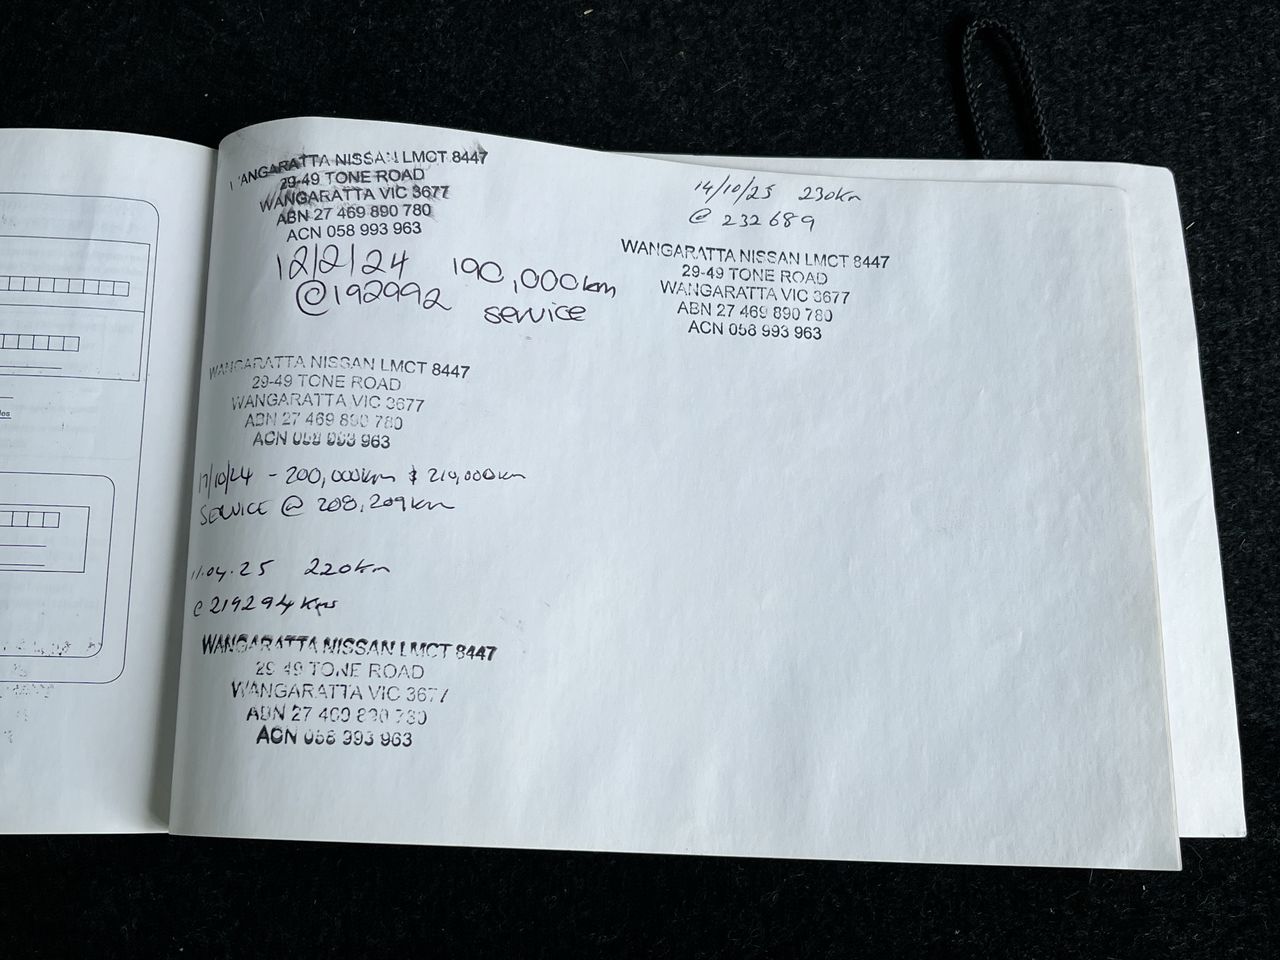 WANGARATTA NISSAN LMCT 8447
29-49 TONE ROAD
WANGARATTA VIC 3677
ABN 27 469 890 780
ACN 058 993 963
12/2/24 190,000km
@192992 service
WANGARATTA NISSAN LMCT 8447
29-49 TONE ROAD
WANGARATTA VIC 3677
ABN 27 469 890 780
ACN 058 993 963
17/10/24 - 200,000km & 210,000km
SERVICE @ 208,209km
11.04.25 220km
@ 219294 kms
WANGARATTA NISSAN LMCT 8447
29-49 TONE ROAD
WANGARATTA VIC 3677
ABN 27 469 890 780
ACN 058 993 963
14/10/25 230km
@ 232689
WANGARATTA NISSAN LMCT 8447
29-49 TONE ROAD
WANGARATTA VIC 3677
ABN 27 469 890 780
ACN 058 993 963